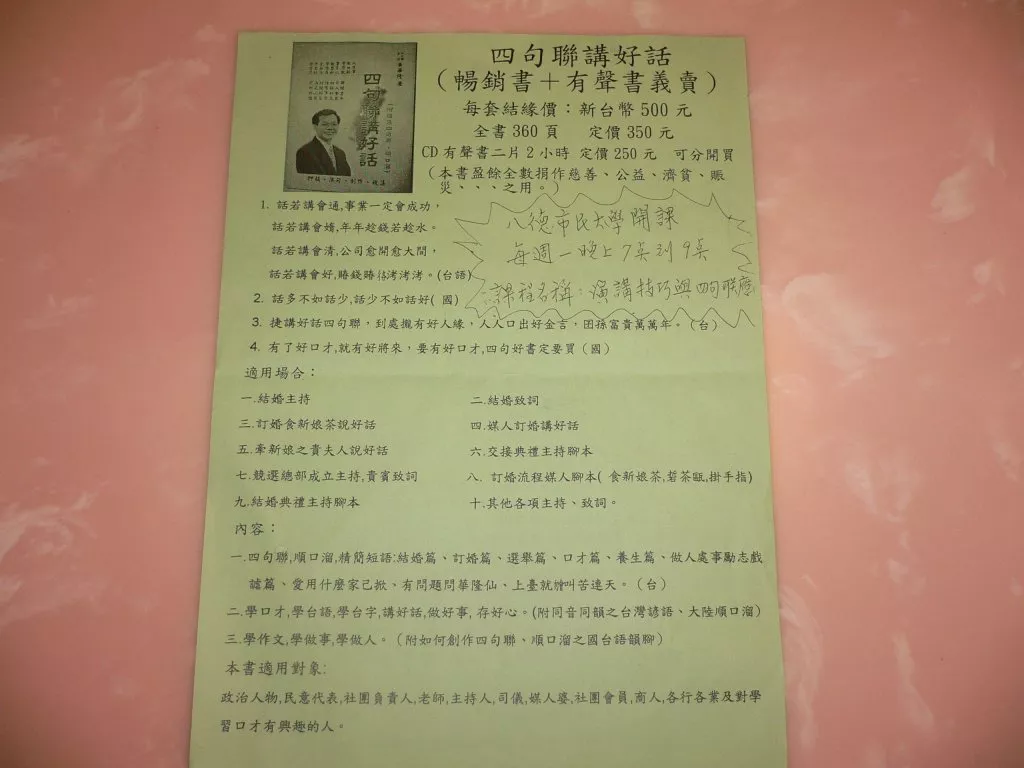 四句聯講好話
四句聯講好話
(暢銷書＋有聲書義賣)
每套結緣價：新台幣 500 元
全書 360 頁　定價 350 元
CD 有聲書二片 2 小時 定價 250 元　可分開買
(本書盈餘全數捐作慈善、公益、濟貧、賑
災、、、之用。)
八德市民大學開課
每週一晚上7点到9点
課程名稱：演講技巧與四句聯應
1. 話若講會通,事業一定會成功，
話若講會婧,年年趁錢若趁水。
話若講會清,公司愈開愈大間，
話若講會好,賰錢賰 洘洘洘。(台語)
2. 話多不如話少,話少不如話好( 國)
3. 捷講好話四句聯，到處攏有好人緣，人人口出好金言，囝孫富貴萬萬年。(台)
4. 有了好口才,就有好將來，要有好口才,四句好書定要買（國）
適用場合：
一.結婚主持　二.結婚致詞
三.訂婚食新娘茶說好話　四.媒人訂婚講好話
五.牽新娘之貴夫人說好話　六.交接典禮主持腳本
七.競選總部成立主持,貴賓致詞　八. 訂婚流程媒人腳本( 食新娘茶,硩茶甌,掛手指)
九.結婚典禮主持腳本　十.其他各項主持、致詞。
內容：
一.四句聯,順口溜,精簡短語:結婚篇、訂婚篇、選舉篇、口才篇、養生篇、做人處事勵志戲
謔篇、愛用什麼家己掀、有問題問華隆仙、上臺就𣍐叫苦連天。(台)
二.學口才,學台語,學台字,講好話,做好事, 存好心。(附同音同韻之台灣諺語、大陸順口溜)
三.學作文,學做事,學做人。（附如何創作四句聯、順口溜之國台語韻腳）
本書適用對象:
政治人物,民意代表,社團負責人,老師,主持人,司儀,媒人婆,社團會員,商人,各行各業及對學
習口才有興趣的人。